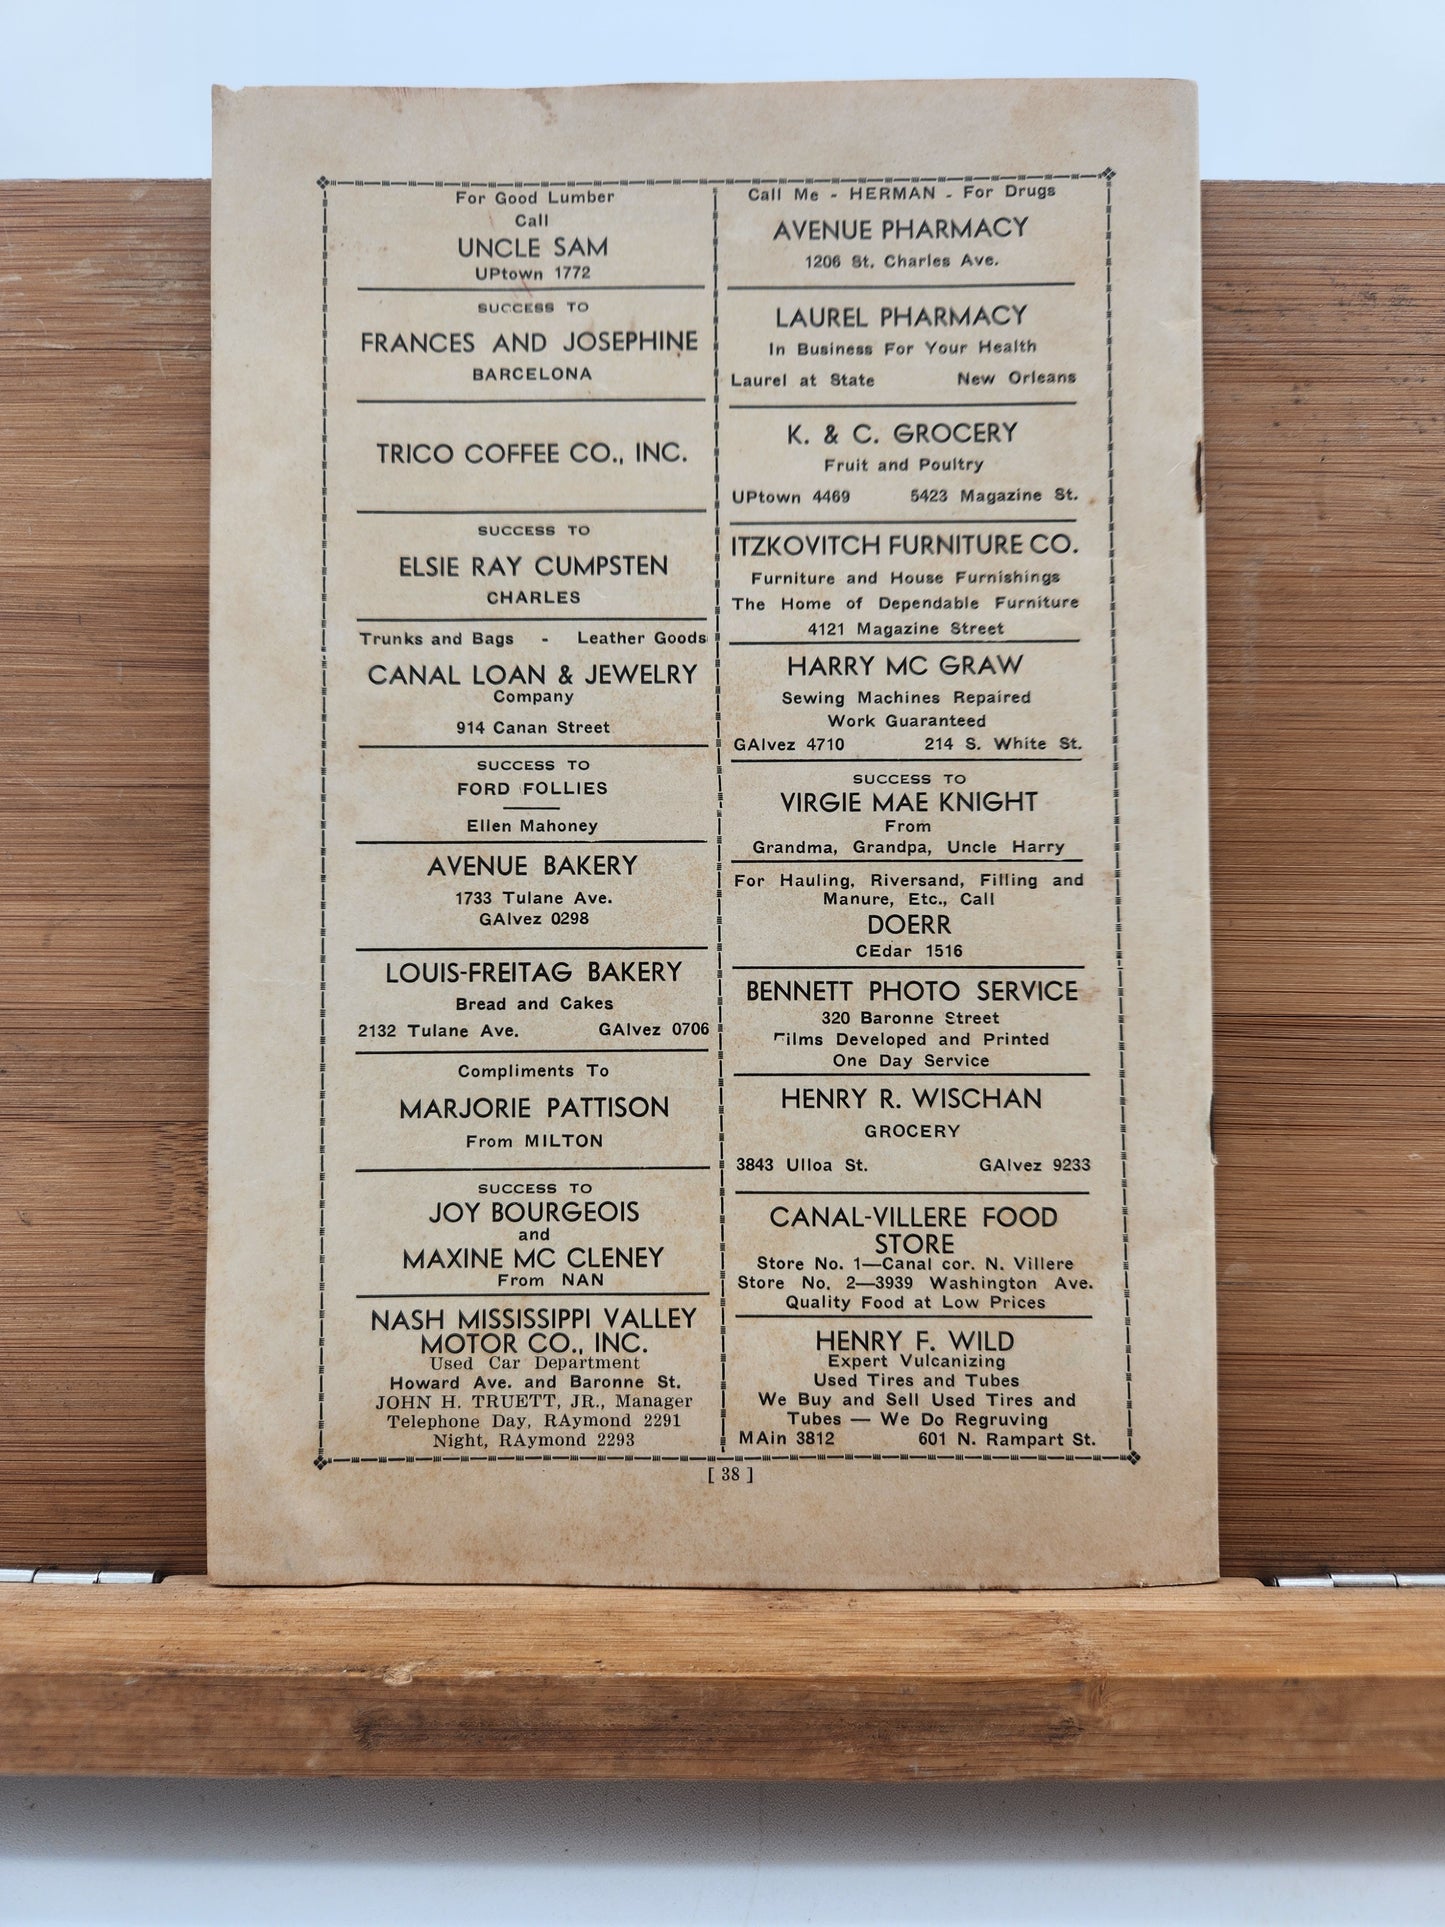 For Good Lumber
Call
UNCLE SAM
UPtown 1772
SUCCESS TO
FRANCES AND JOSEPHINE
BARCELONA
TRICO COFFEE CO., INC.
SUCCESS TO
ELSIE RAY CUMPSTEN
CHARLES
Trunks and Bags - Leather Goods
CANAL LOAN & JEWELRY
Company
914 Canan Street
SUCCESS TO
FORD FOLLIES
Ellen Mahoney
AVENUE BAKERY
1733 Tulane Ave.
GAlvez 0298
LOUIS-FREITAG BAKERY
Bread and Cakes
2132 Tulane Ave. GAlvez 0706
Compliments To
MARJORIE PATTISON
From MILTON
SUCCESS TO
JOY BOURGEOIS
and
MAXINE MC CLENEY
From NAN
NASH MISSISSIPPI VALLEY
MOTOR CO., INC.
Used Car Department
Howard Ave. and Baronne St.
JOHN H. TRUETT, JR., Manager
Telephone Day, RAymond 2291
Night, RAymond 2293
Call Me - HERMAN - For Drugs
AVENUE PHARMACY
1206 St. Charles Ave.
LAUREL PHARMACY
In Business For Your Health
Laurel at State New Orleans
K. & C. GROCERY
Fruit and Poultry
UPtown 4469 5423 Magazine St.
ITZKOVITCH FURNITURE CO.
Furniture and House Furnishings
The Home of Dependable Furniture
4121 Magazine Street
HARRY MC GRAW
Sewing Machines Repaired
Work Guaranteed
GAlvez 4710 214 S. White St.
SUCCESS TO
VIRGIE MAE KNIGHT
From
Grandma, Grandpa, Uncle Harry
For Hauling, Riversand, Filling and
Manure, Etc., Call
DOERR
CEdar 1516
BENNETT PHOTO SERVICE
320 Baronne Street
Films Developed and Printed
One Day Service
HENRY R. WISCHAN
GROCERY
3843 Ulloa St. GAlvez 9233
CANAL-VILLERE FOOD
STORE
Store No. 1—Canal cor. N. Villere
Store No. 2—3939 Washington Ave.
Quality Food at Low Prices
HENRY F. WILD
Expert Vulcanizing
Used Tires and Tubes
We Buy and Sell Used Tires and
Tubes — We Do Regruving
MAin 3812 601 N. Rampart St.
[ 38 ]